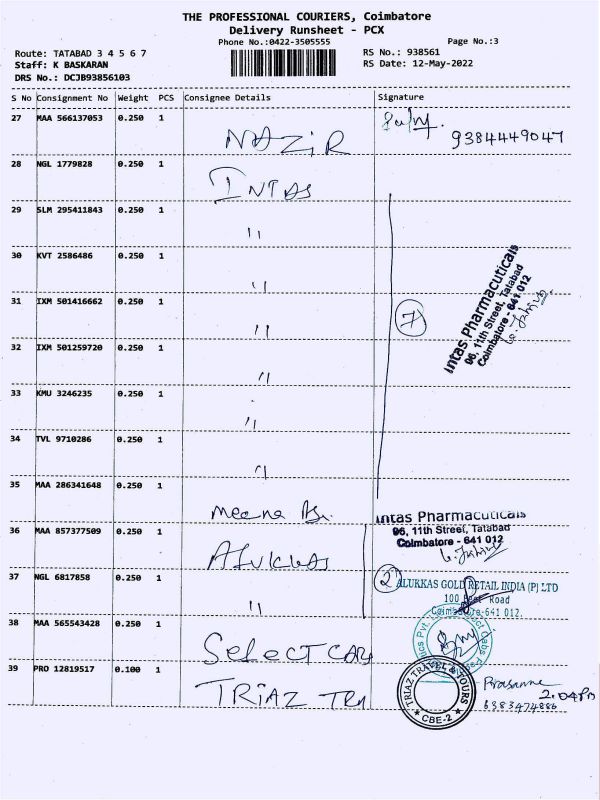 THE PROFESSIONAL COURIERS, Coimbatore
Delivery Runsheet - PCX
Phone No.:0422-3505555
Page No.:3
Route: TATABAD 3 4 5 6 7
Staff: K BASKARAN
DRS No.: DCJB93856103
RS No.: 938561
RS Date: 12-May-2022
S No Consignment No Weight PCS Consignee Details Signature
27 MAA 566137053 0.250 1 NAZIR 9384449047
28 NGL 1779828 0.250 1 INTAS
29 SLM 295411843 0.250 1 "
30 KVT 2586486 0.250 1 "
31 IXM 501416662 0.250 1 " 7
Intas Pharmacuticals
96, 11th Street, Tatabad
Coimbatore - 641 012
32 IXM 501259720 0.250 1 "
33 KMU 3246235 0.250 1 "
34 TVL 9710286 0.250 1 "
35 MAA 286341648 0.250 1 Meena
Intas Pharmacuticals
96, 11th Street, Tatabad
Coimbatore - 641 012
36 MAA 857377509 0.250 1 Alukkas
37 NGL 6817858 0.250 1 " 2
ALUKKAS GOLD RETAIL INDIA (P) LTD
100 Feet Road
Coimbatore-641 012.
38 MAA 565543428 0.250 1 Select Car
39 PRO 12819517 0.100 1 TRIAZ TRA
TRIAZ TRAVEL & TOURS
CBE-2
Prasanna
2.04PM
6383474886